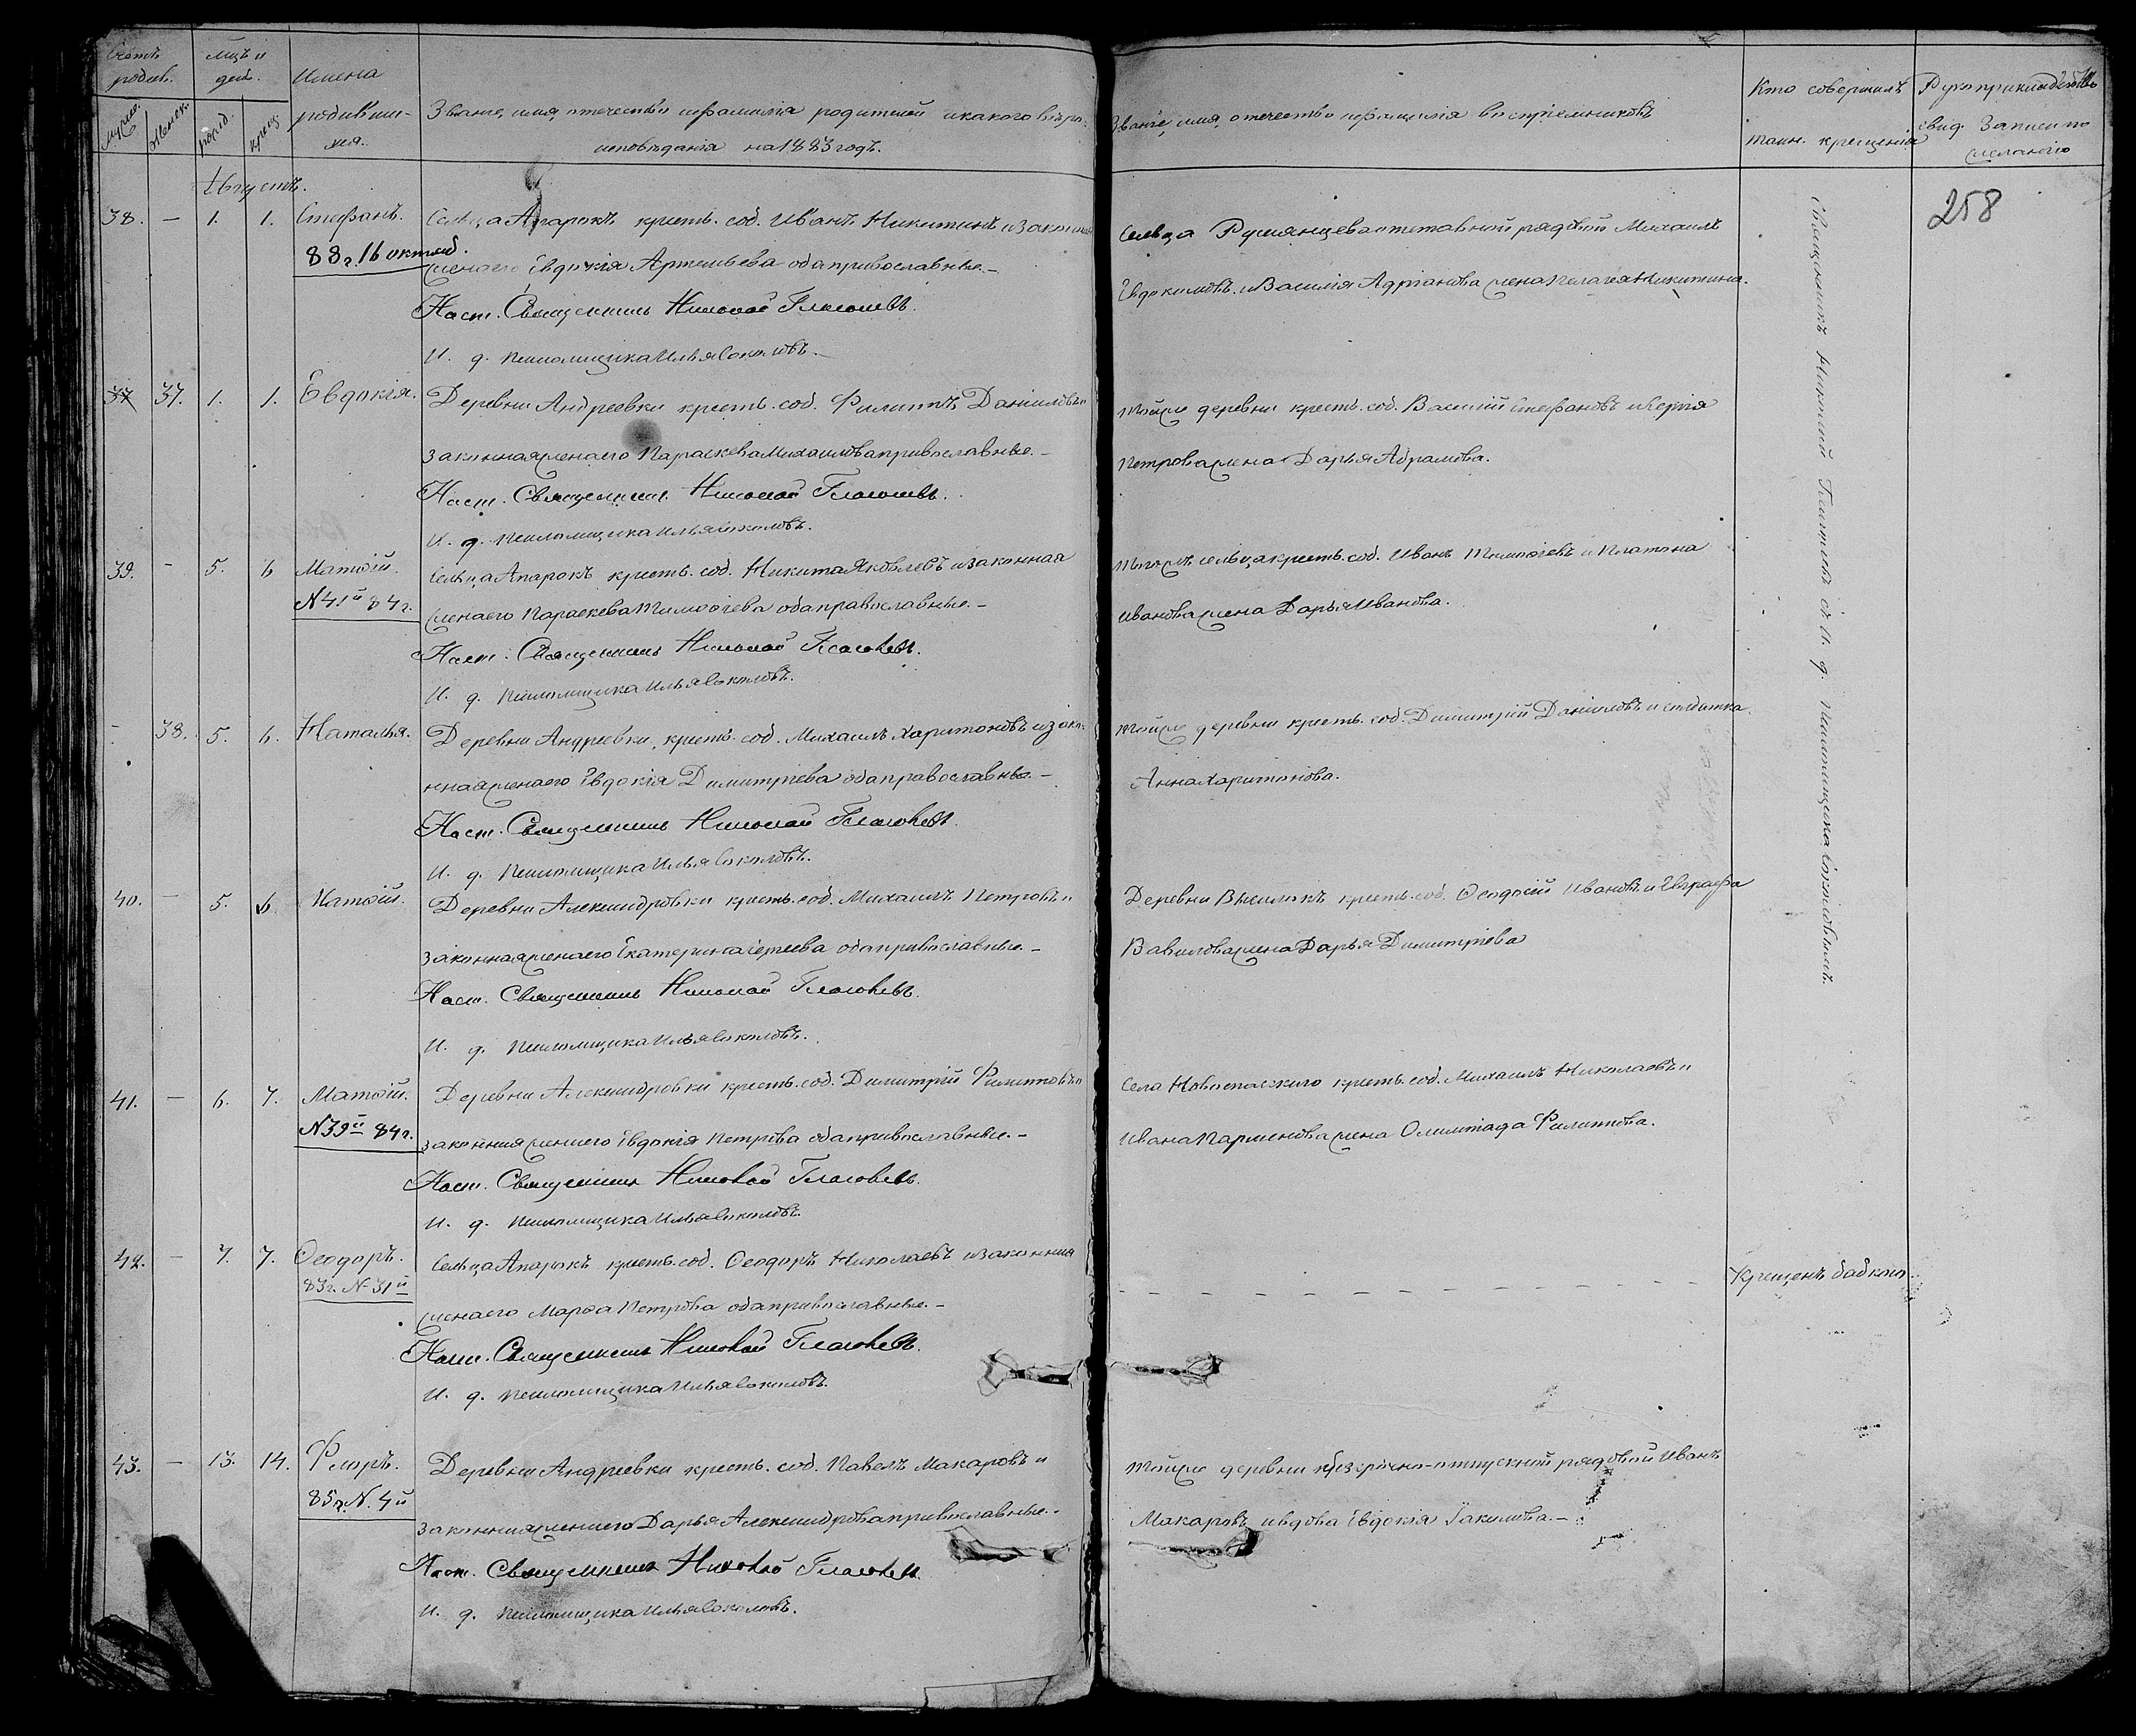 Счетъ родив.
Мцъ и дей.
Имена родивши-хся.
Званіе, имя, отечество и фамилія родителей и какого вѣро-
исповѣданія на 1883 годъ.
Званіе, имя, отечество и фамилія воспріемниковъ
Кто совершилъ таин. крещенія
Рукоприкладство свид. записи по желанію
муж. женск. рожд. крещ.
Августъ.
258
38. — 1. 1. Стефанъ.
88 г. 16 октяб.
Сельца Апарокъ крест. соб. Иванъ Никитинъ и законная
жена его Евдокія Артемьева оба православные. —
Наст. Священникъ Николай
И. д. псаломщика Илья Соколовъ. —
Сельца Румянцева отставной рядовой Михаилъ
Евдокимовъ и Василія Адріанова жена Пелагея Никитина.
Священникъ Николай съ И. д. псаломщика Соколовымъ.
37 37. 1. 1. Евдокія.
Деревни Андреевки крест. соб. Филиппъ Даніиловъ и
законная жена его Параскева Михаилова православные. —
Наст. Священникъ Николай
И. д. псаломщика Илья Соколовъ.
Тойже деревни крест. соб. Василій Стефановъ и Сергія
Петрова жена Дарья Абрамова.
39. - 5. 6 Матѳій.
N 41й 84 г.
Сельца Апарокъ крест. соб. Никита Яковлевъ и законная
жена его Параскева Тимоѳіева оба православные. —
Наст. Священникъ Николай
И. д. псаломщика Илья Соколовъ.
Тогожъ сельца крест. соб. Иванъ Тимоѳіевъ и Платона
Иванова жена Дарья Иванова.
- 38. 5. 6. Наталья.
Деревни Андреевки, крест. соб. Михаилъ Харитоновъ и зако-
нная жена его Евдокія Димитріева оба православные. —
Наст. Священникъ Николай
И. д. псаломщика Илья Соколовъ.
Тойже деревни крест. соб. Димитрій Даніиловъ и солдатка
Анна Харитонова.
40. — 5. 6. Матѳій.
Деревни Александровки крест. соб. Михаилъ Петровъ и
законная жена его Екатерина Сергеева оба православные. —
Наст. Священникъ Николай
И. д. псаломщика Илья Соколовъ.
Деревни крест. соб. Ѳеодосій Ивановъ и Евграфа
Вавилова жена Дарья Димитріева
41. — 6. 7. Матѳій.
N 39й 84 г.
Деревни Александровки крест. соб. Димитрій Филипповъ и
законная жена его Евдокія Петрова оба православные. —
Наст. Священникъ Николай
И. д. псаломщика Илья Соколовъ.
Села Новоспасскаго крест. соб. Михаилъ Николаевъ и
Ивана Парменова жена Олимпіада Филиппова.
42. — 7. 7. Ѳеодоръ.
83 г. N 31й
Сельца Апарокъ крест. соб. Ѳеодоръ Николаевъ и законная
жена его Марѳа Петрова оба православные. —
Наст. Священникъ Николай
И. д. псаломщика Илья Соколовъ.
Крещенъ бабкою.
43. — 13. 14. Флоръ.
85 г. N. 4й
Деревни Андреевки крест. соб. Павелъ Макаровъ и
законная жена его Дарья Александрова православные. —
Наст. Священникъ Николай
И. д. псаломщика Илья Соколовъ.
Тойже деревни безсрочно-отпускной рядовой Иванъ
Макаровъ и вдова Евдокія Іакимова. —